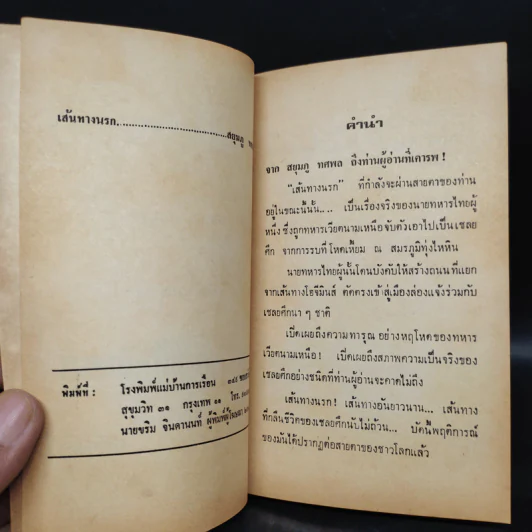 เส้นทางนรก..............................สยุมภู
พิมพ์ที่ : โรงพิมพ์แม่บ้านการเรือน
สุขุมวิท ๓๑ กรุงเทพ ๑๑ โทร.
นายขริม จินดานนท์ ผู้พิมพ์ผู้โฆษณา
คำนำ
จาก สยุมภู ทศพล ถึงท่านผู้อ่านที่เคารพ !
"เส้นทางนรก" ที่กำลังจะผ่านสายตาของท่าน
อยู่ในขณะนี้นั้น.... เป็นเรื่องจริงของนายทหารไทยผู้
หนึ่ง ซึ่งถูกทหารเวียดนามเหนือจับตัวเอาไปเป็นเชลย
ศึก จากการรบที่โหดเหี้ยม ณ สมรภูมิทุ่งไหหิน
นายทหารไทยผู้นั้นโดนบังคับให้สร้างถนนที่แยก
จากเส้นทางโฮจิมินส์ ตัดตรงเข้าสู่เมืองล่องแจ้งร่วมกับ
เชลยศึกนา ๆ ชาติ
เปิดเผยถึงความทารุณอย่างหฤโหดของทหาร
เวียดนามเหนือ! เปิดเผยถึงสภาพความเป็นจริงของ
เชลยศึกอย่างชนิดที่ท่านผู้อ่านจะคาดไม่ถึง
เส้นทางนรก! เส้นทางอันยาวนาน... เส้นทาง
ที่กลืนชีวิตของเชลยศึกนับไม่ถ้วน... บัดนี้พฤติการณ์
ของมันได้ปรากฏต่อสายตาของชาวโลกแล้ว